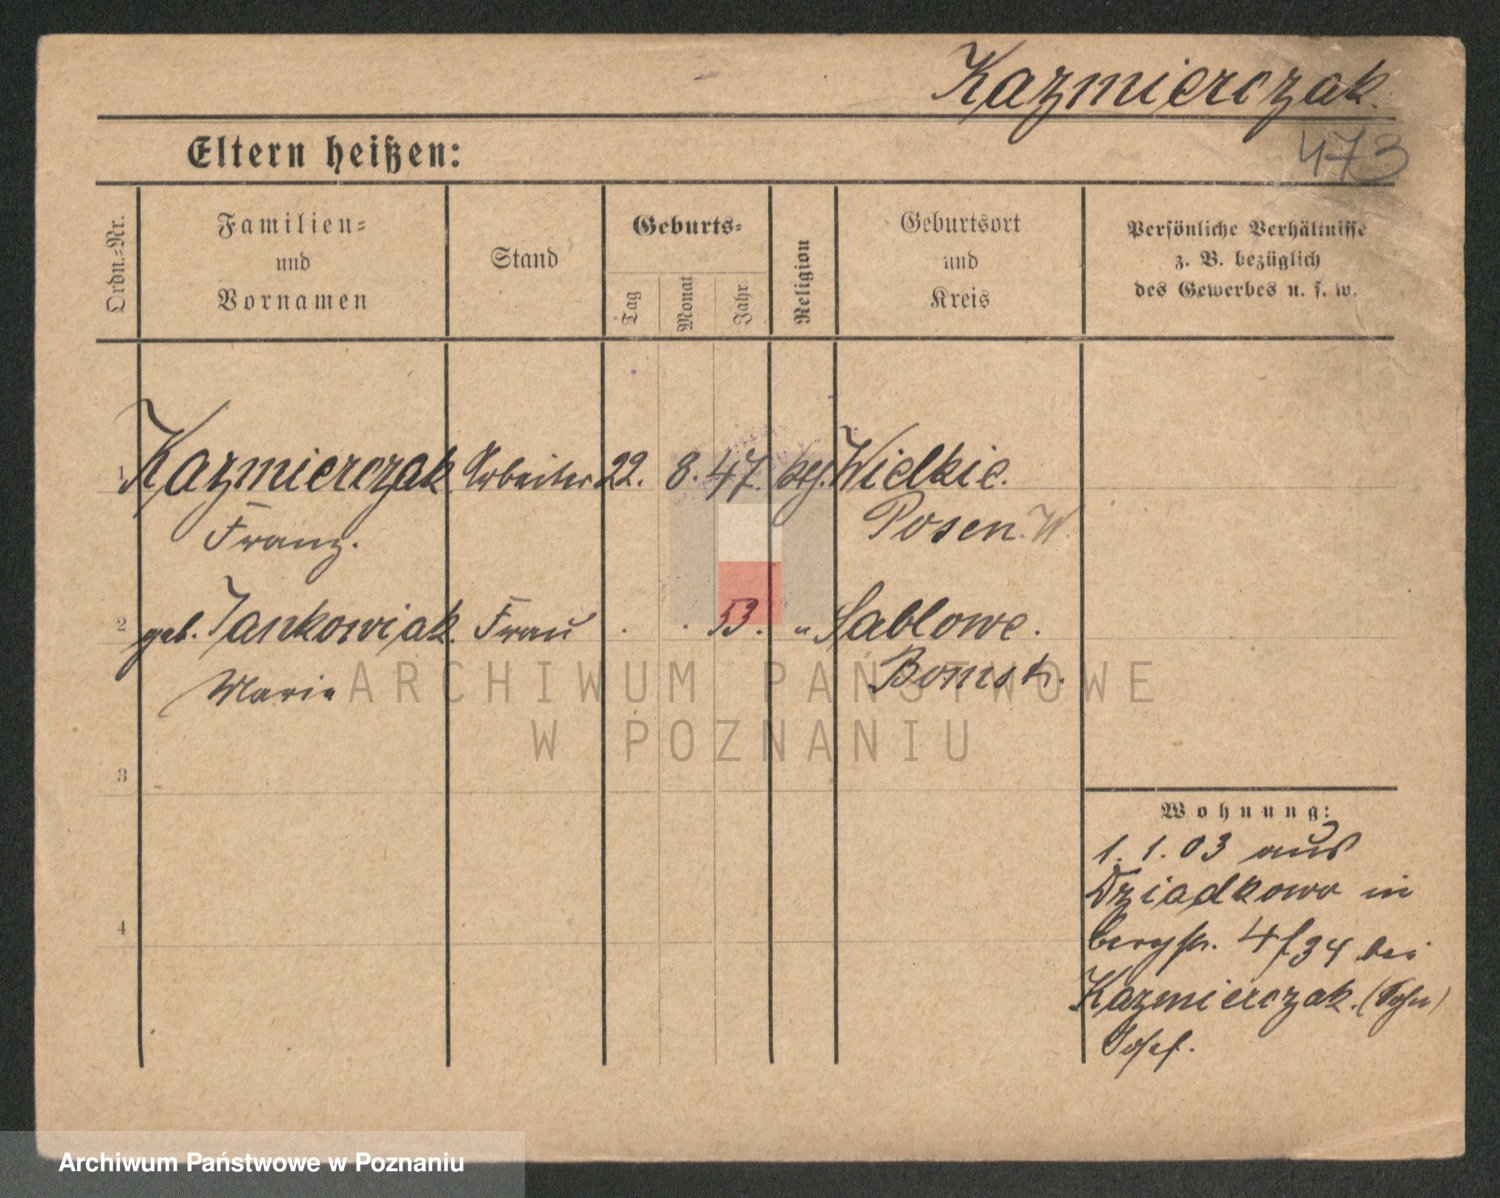 Kazmierczak.
473
Eltern heißen:
Ordn.-Nr.
Familien-
und
Vornamen
Stand
Geburts-
Tag
Monat
Jahr
Religion
Geburtsort
und
Kreis
Persönliche Verhältnisse
z. B. bezüglich
des Gewerbes u. s. w.
1 Kazmierczak Arbeiter 22. 8. 47. kth. Wielkie.
Franz. Posen. W.
2 geb. Jankowiak. Frau . . 53. " Sablowe.
Marie Bomst.
ARCHIWUM PAŃSTWOWE
W POZNANIU
3
4
Wohnung:
1. 1. 03 aus
Dziadkowo in
Bergstr. 4 f 34 bei
Kazmierczak. (Sohn)
Josef.
Archiwum Państwowe w Poznaniu